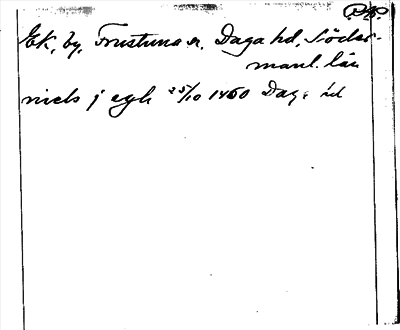 Ek, by, Frustuna sn, Daga hd, Söder-
manl. län
niels j egh 25/10 1460 Daga hd